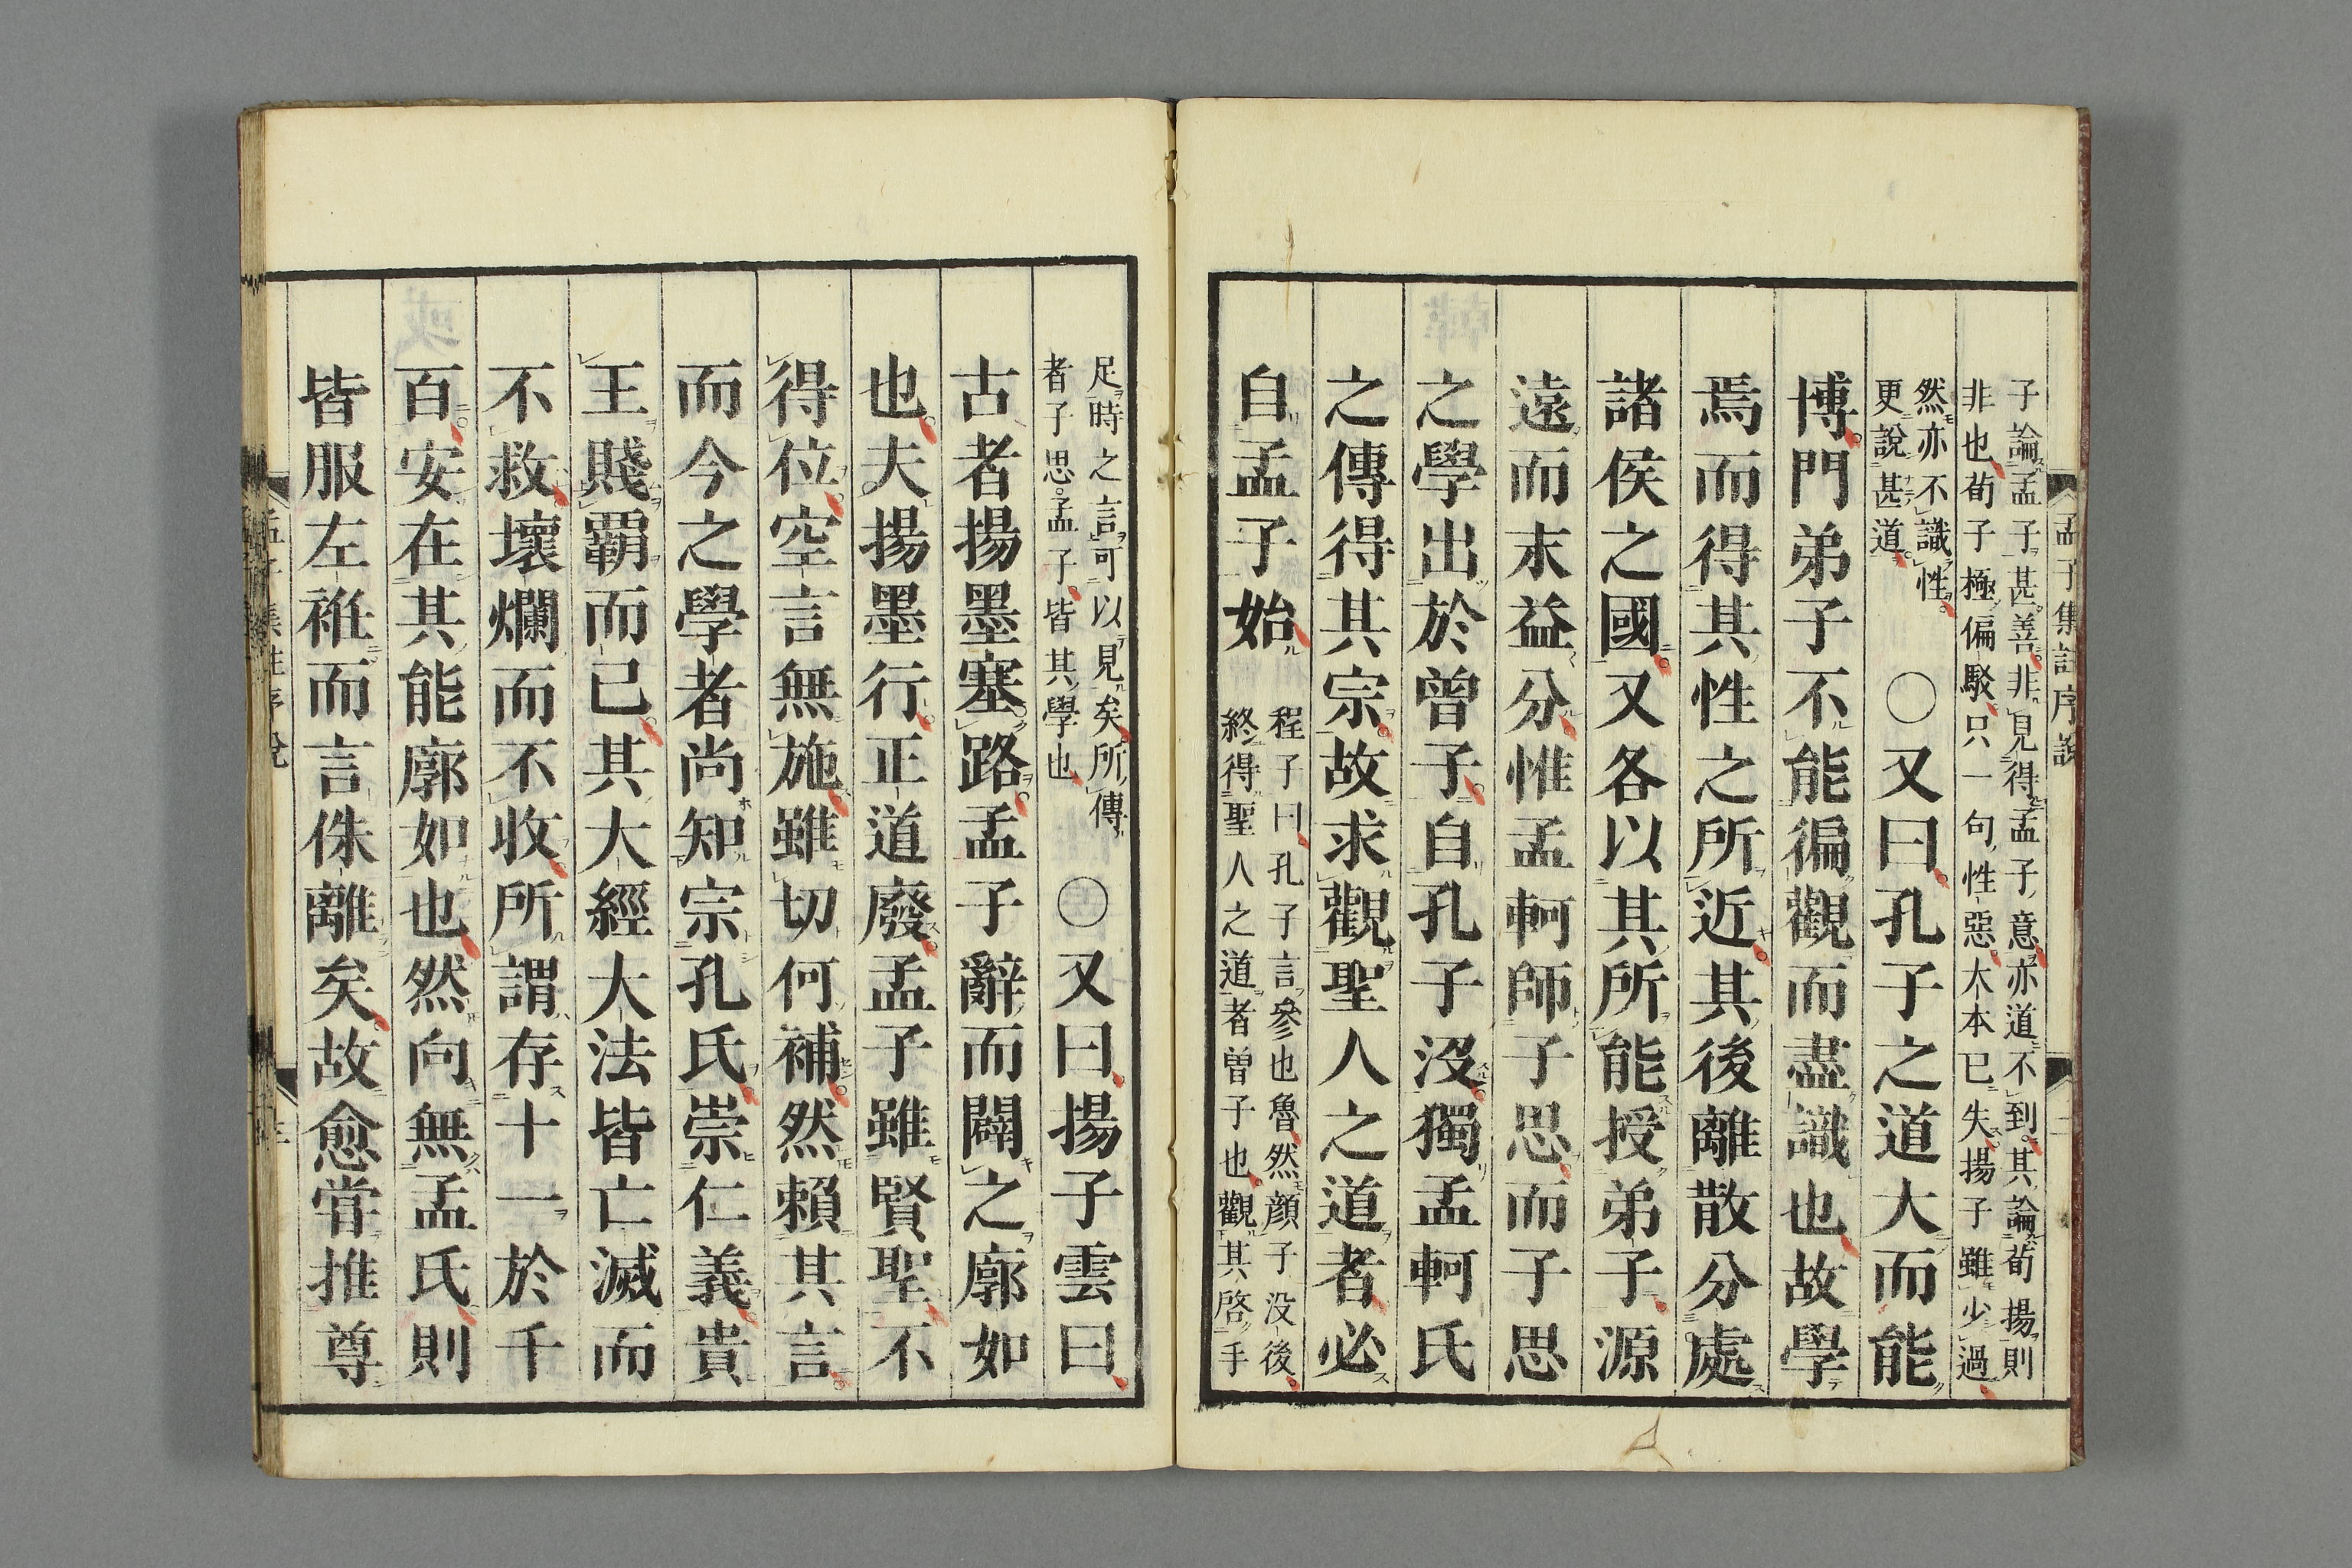 孟子集註序說
二
子論孟子甚善非見得孟子意亦道不到其論荀揚則
非也荀子極偏駁只一句性惡大本已失揚子雖少過
然亦不識性
更說甚道
○又曰孔子之道大而能
博門弟子不能徧觀而盡識也故學
焉而得其性之所近其後離散分處
諸侯之國又各以其所能授弟子源
遠而末益分惟孟軻師子思而子思
之學出於曾子自孔子没獨孟軻氏
之傳得其宗故求觀聖人之道者必
自孟子始
程子曰孔子言參也魯然顔子没後
終得聖人之道者曾子也觀其啓手
足時之言可以見矣所傳
者子思孟子皆其學也
○又曰揚子雲曰
古者揚墨塞路孟子辭而闢之廓如
也夫揚墨行正道廢孟子雖賢聖不
得位空言無施雖切何補然賴其言
而今之學者尚知宗孔氏崇仁義貴
王賤覇而已其大經大法皆亡滅而
不救壞爛而不收所謂存十一於千
百安在其能廓如也然向無孟氏則
皆服左袵而言侏離矣故愈甞推尊